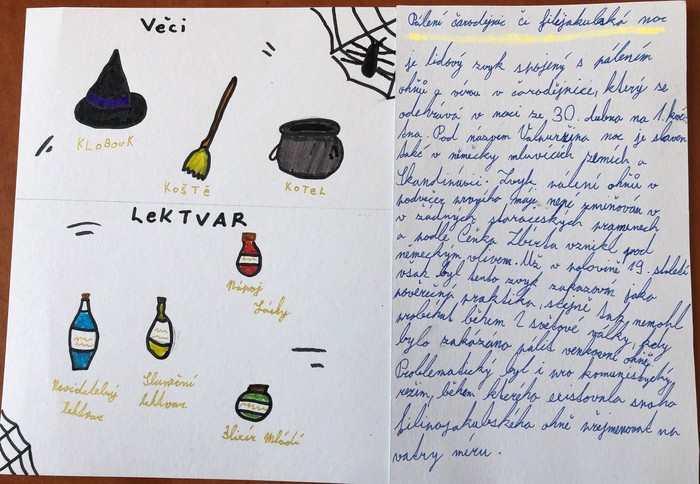 Věci
KLOBOUK
KOŠTĚ
KOTEL
LeKTVAR
Nápoj
Lásky
Neviditelný
lektvar
Sluneční
lektvar
Elixír Mládí
Pálení čarodějnic či filipojakubská noc
je lidový zvyk spojený s pálením
ohňů a vírou v čarodějnice, který se
odehrává v noci ze 30. dubna na 1. kvě
tna. Pod názvem Valpuržina noc je slaven
také v německy mluvících zemích a
Skandinávii. Zvyk pálení ohňů v
podvečer prvního máje není zmiňován v
v žádných staročeských pramenech
a podle Čeňka Zíbrta vznikl pod
německým vlivem. Už v polovině 19. století
však byl tento zvyk zakazován jako
pověrečná praktika, stejně tak nemohl
probíhat během 1 světové války, kdy
bylo zakázáno pálit venkovní ohně.
Problematický byl i pro komunistický
režim, během kterého existovala snaha
filipojakubského ohně přejmenovat na
vatry míru.